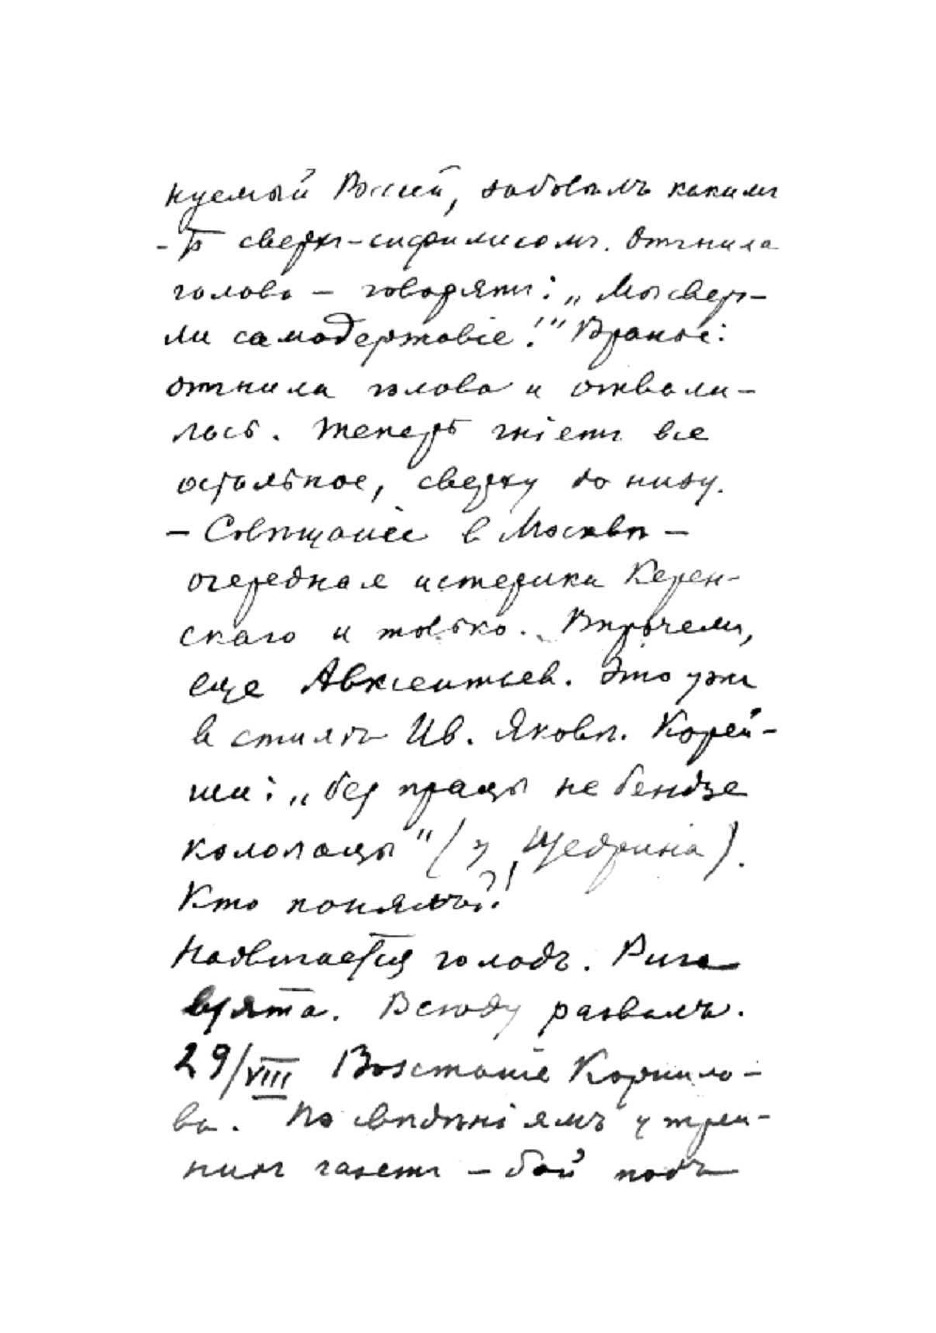 нуемый Россией, заболѣлъ какимъ
-то сверхъ-сифилисомъ. Отгнила
голова – говорятъ: „Мы сверг-
ли самодержавіе!" Вранье:
отгнила голова и отвали-
лась. Теперь гніетъ все
остальное, сверху до низу.
– Совѣщаніе в Москвѣ –
очередная истерика Керен-
скаго и только. Впрочемъ,
еще Авксентьев. Это уже
в стилѣ Ив. Яковл. Корей-
ши: „без працы не бендзе
кололацы" (у Щедрина).
Кто понялъ?!
Надвигается голодъ. Рига
взята. Всюду развалъ.
29/VIII Возстаніе Корнило-
ва. По свѣдѣніямъ утрен-
нихъ газетъ – бой подъ